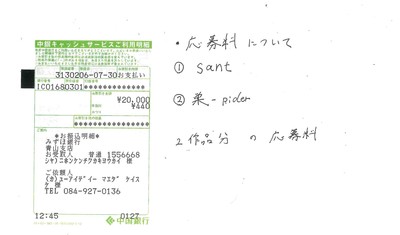 中銀キャッシュサービスご利用明細
3130206-07-30お支払い
IC01680301✱✱✱✱✱✱✱✱✱✱
¥20,000
¥440
*お振込明細*
みずほ銀行
青山支店
お受取人 普通 1556668
シヤ)ニホンケンチクカキヨウカイ 様
ご依頼人
(カ)ユーアイデイー マエダ ケイス
ケ 様
TEL 084-927-0136
12:45 0127
中国銀行
・応募料について
① sant
② 巣-pider
2作品分の応募料